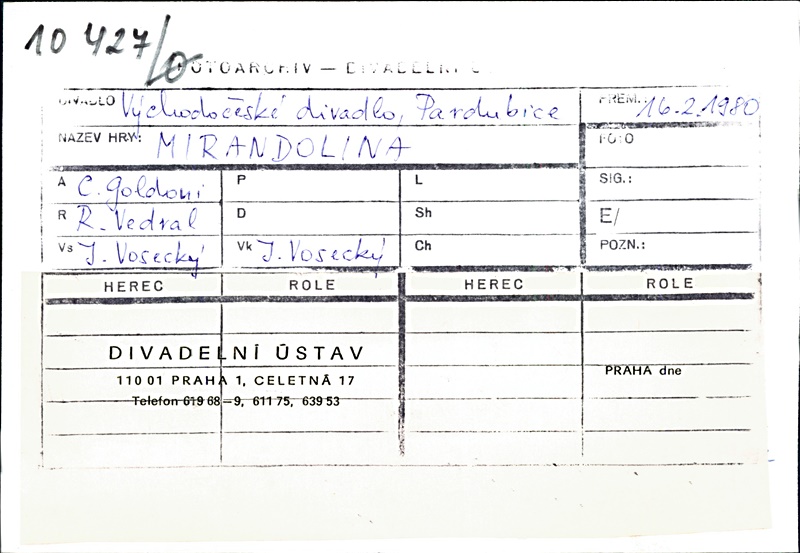 10 427/0
FOTOARCHIV — DIVADELNÍ Ú
DIVADLO Východočeské divadlo, Pardubice PREM.: 16.2.1980
NÁZEV HRY: MIRANDOLINA FOTO
A C. Goldoni P L SIG.:
R R. Vedral D Sh E/
Vs J. Vosecký Vk J. Vosecký Ch POZN.:
HEREC ROLE HEREC ROLE
DIVADELNÍ ÚSTAV
110 01 PRAHA 1, CELETNÁ 17 PRAHA dne
Telefon 619 68–9, 611 75, 639 53